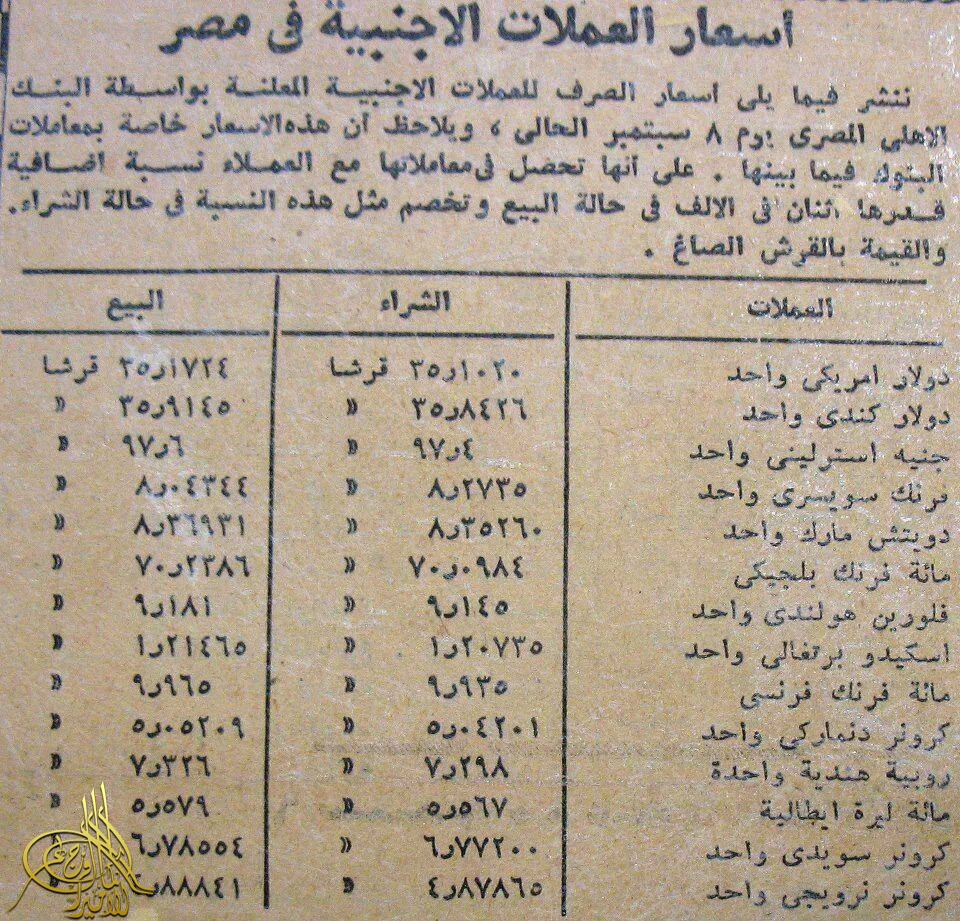 أسعار العملات الاجنبية فى مصر
ننشر فيما يلى اسعار الصرف للعملات الاجنبية المعلنة بواسطة البنك
الاهلى المصرى يوم ٨ سبتمبر الحالى ، ويلاحظ أن هذه الاسعار خاصة بمعاملات
البنوك فيما بينها . على انها تحصل فى معاملاتها مع العملاء نسبة اضافية
قدرها اثنان فى الالف فى حالة البيع وتخصم مثل هذه النسبة فى حالة الشراء.
والقيمة بالقرش الصاغ .
العملات الشراء البيع
دولار امريكى واحد ٣٥ر١٠٢٠ قرشا ٣٥ر١٧٢٤ قرشا
دولار كندى واحد ٣٥ر٨٤٢٦ » ٣٥ر٩١٤٥ »
جنيه استرلينى واحد ٩٧ر٤ » ٩٧ر٦ »
فرنك سويسرى واحد ٨ر٢٧٣٥ » ٨ر٠٤٣٤٤ »
دويتش مارك واحد ٨ر٣٥٢٦٠ » ٨ر٣٦٩٣١ »
مائة فرنك بلجيكى ٧٠ر٠٩٨٤ » ٧٠ر٢٣٨٦ »
فلورين هولندى واحد ٩ر١٤٥ » ٩ر١٨١ »
اسكيدو برتغالى واحد ١ر٢٠٧٣٥ » ١ر٢١٤٦٥ »
مائة فرنك فرنسى ٩ر٩٣٥ » ٩ر٩٦٥ »
كرونر دنماركى واحد ٥ر٠٤٢٠١ » ٥ر٠٥٢٠٩ »
روبية هندية واحدة ٧ر٢٩٨ » ٧ر٣٢٦ »
مائة ليرة ايطالية ٥ر٥٦٧ » ٥ر٥٧٩ »
كرونر سويدى واحد ٦ر٧٧٢٠٠ » ٦ر٧٨٥٥٤
كرونر نرويجى واحد ٤ر٨٧٨٦٥ » ر٨٨٨٤١